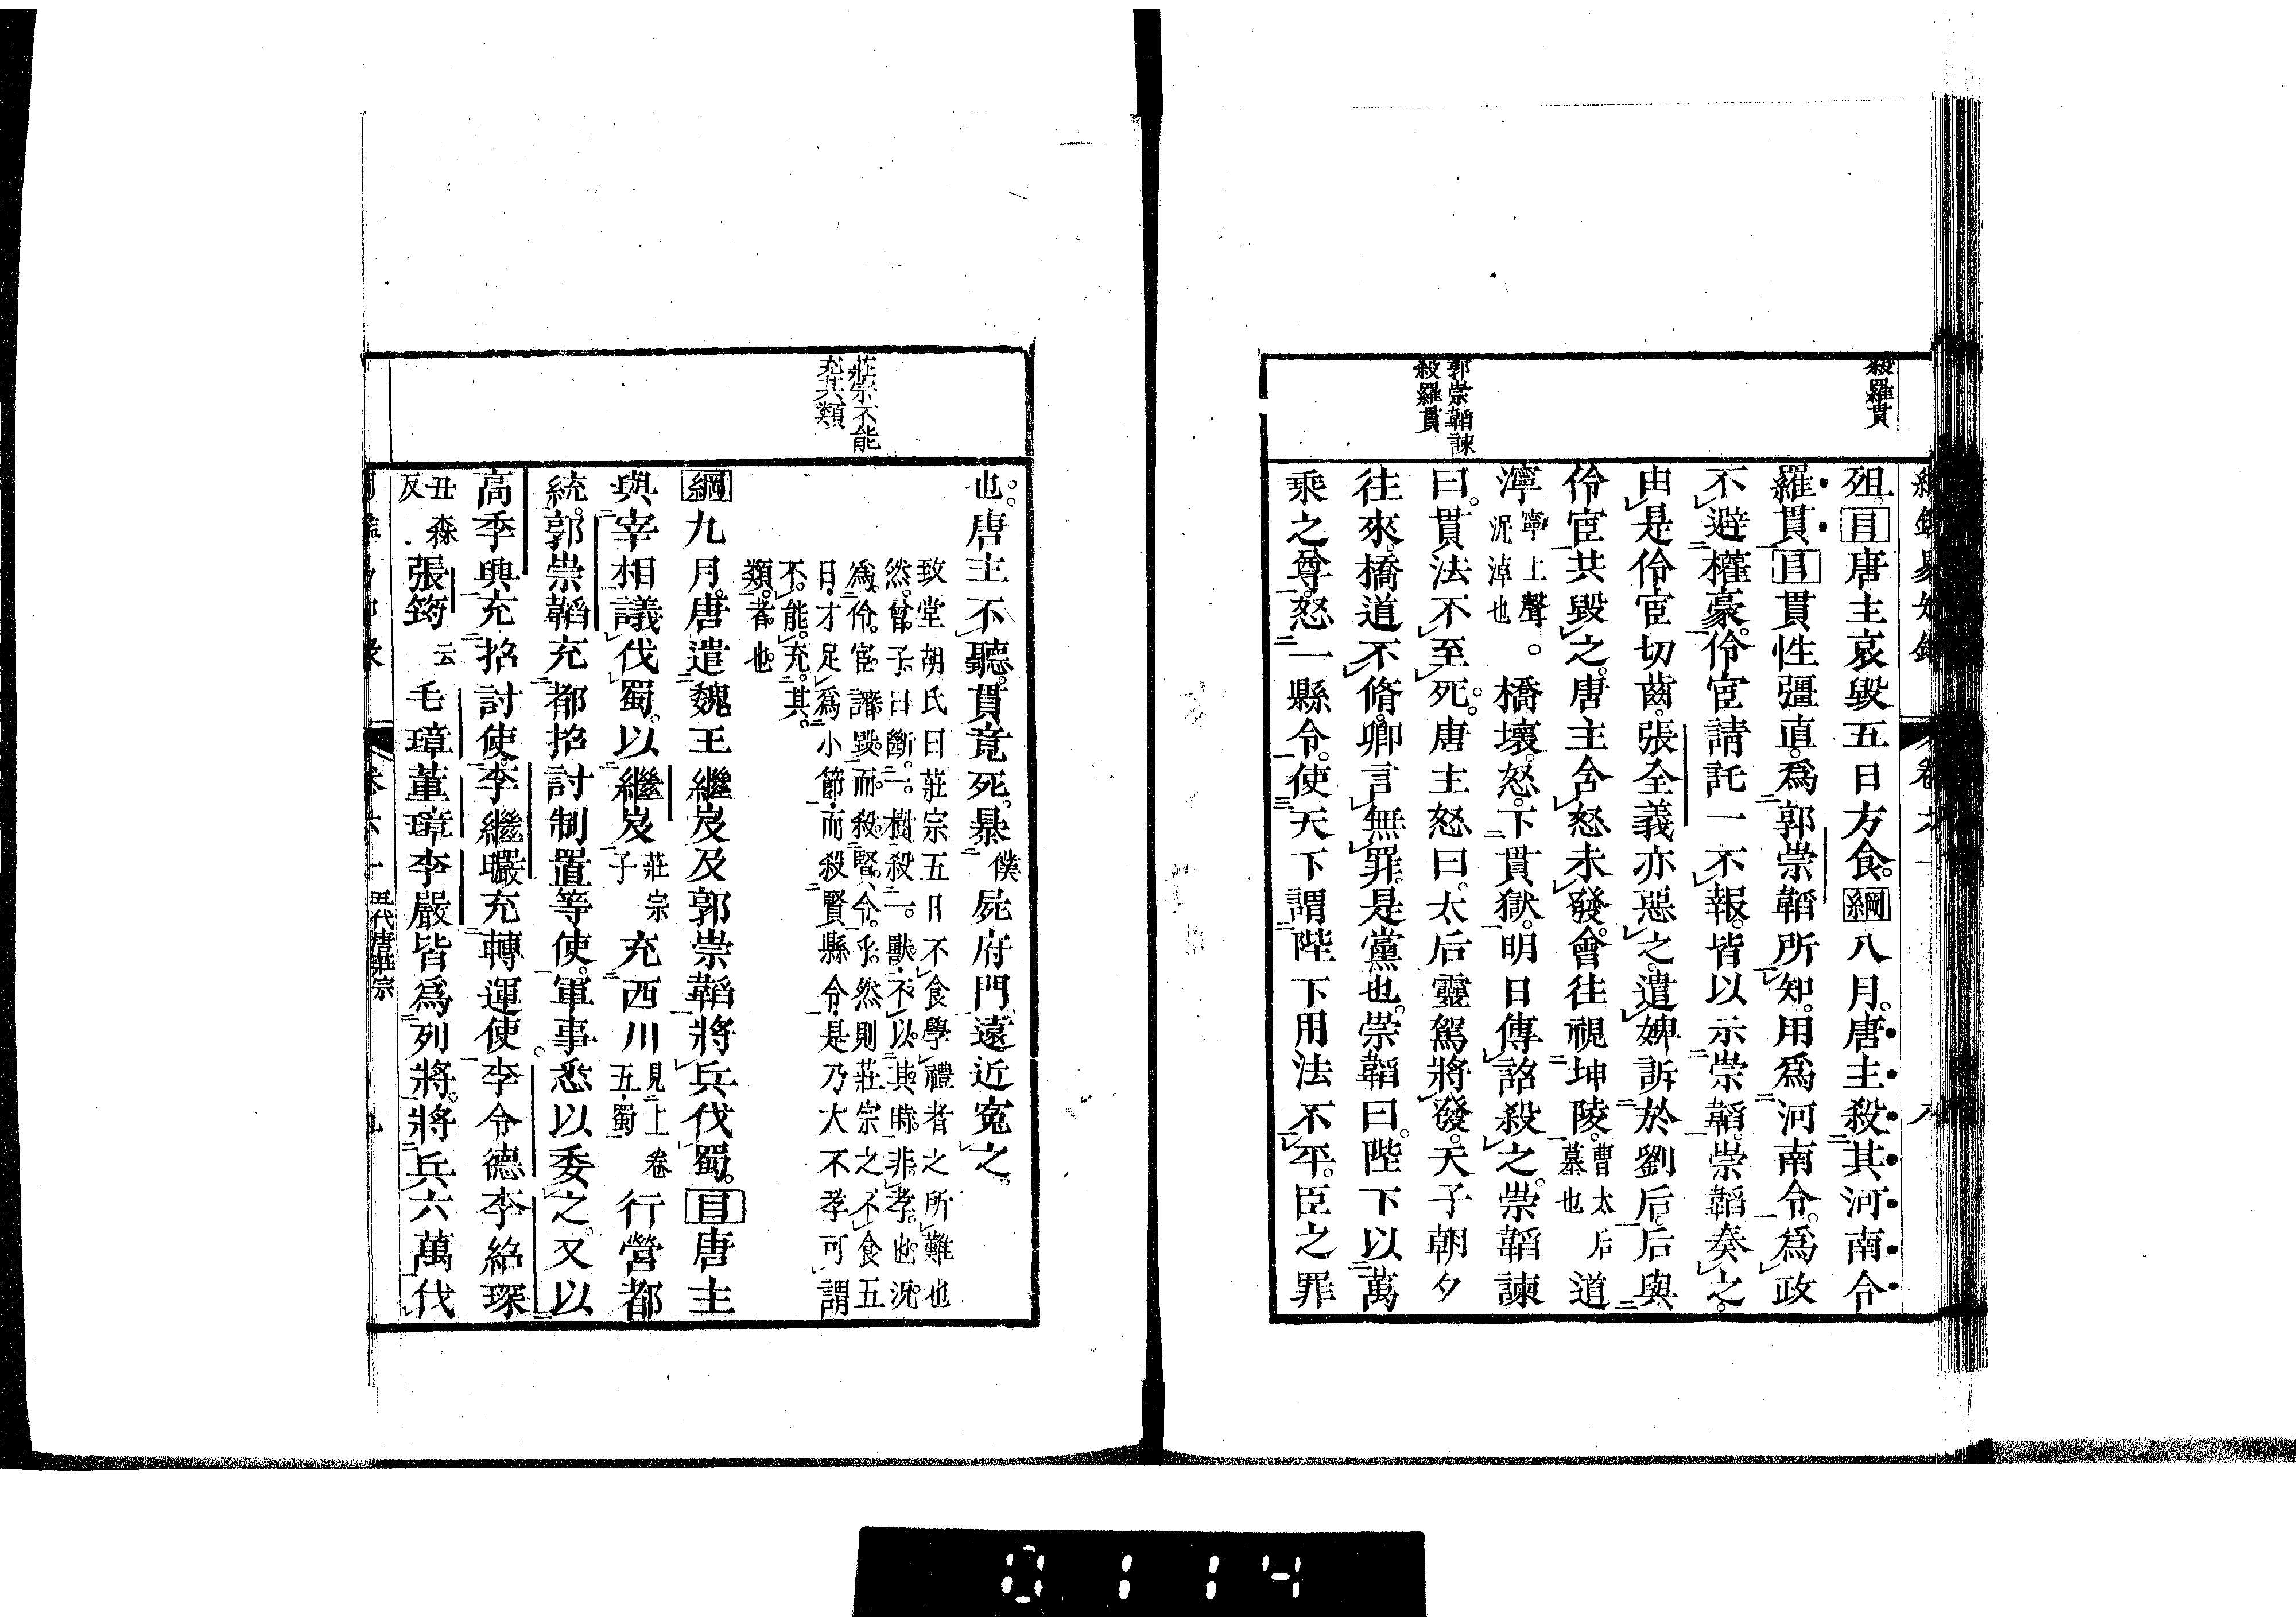 殺羅貫
郭崇韜諫
殺羅貫
殂。目唐主哀毀五日方食。綱八月。唐主殺其河南令
羅貫目貫性彊直。爲郭崇韜所知。用爲河南令。爲政
不避權豪。伶宦請託一不報。皆以示崇韜。崇韜奏之。
由是伶宦切齒。張全義亦惡之。遣婢訴於劉后。后與
伶宦共毀之。唐主含怒未發。會往視坤陵。曹太后墓也道
濘寧上聲。況淖也橋壞。怒。下貫獄。明日傳詔殺之。崇韜諫
曰。貫法不至死。唐主怒曰。太后靈駕將發。天子朝夕
往來。橋道不脩。卿言無罪。是黨也。崇韜曰。陛下以萬
乘之尊。怒一縣令。使天下謂陛下用法不平。臣之罪
莊宗不能
充其類
也。唐主不聽。貫竟死。暴僕屍府門。遠近寃之。
致堂胡氏曰莊宗五日不食學禮者之所難也
然。曾子曰斷一樹殺一獸。不以其時。非孝也況
爲伶宦譖毀。而殺賢令乎。然則莊宗之不食五
日。才足爲小節。而殺賢縣令。是乃大不孝可謂
不能充其
類者也
綱九月。唐遣魏王繼岌及郭崇韜將兵伐蜀。目唐主
與宰相議伐蜀。以繼岌莊宗子充西川見上卷五。蜀行營都
統。郭崇韜充都招討制置等使。軍事悉以委之。又以
高季興充招討使。李繼曮充轉運使李令德李紹琛
丑森反張筠云毛璋董璋李嚴皆爲列將。將兵六萬伐
五代唐莊宗